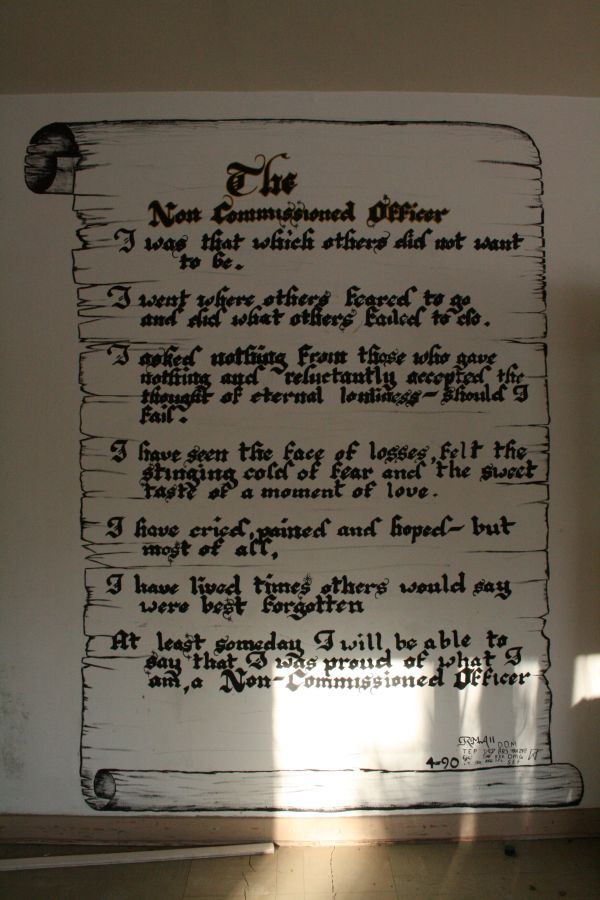 The
Non Commissioned Officer
I was that which others did not want
to be.
I went where others feared to go
and did what others failed to do.
I asked nothing from those who gave
nothing and reluctantly accepted the
thought of eternal lonliness - should I
fail.
I have seen the face of losses, felt the
stinging cold of fear and the sweet
taste of a moment of love.
I have cried, pained and hoped - but
most of all,
I have lived times others would say
were best forgotten
At least someday I will be able to
say that I was proud of what I
am, a Non-Commissioned Officer
4-90